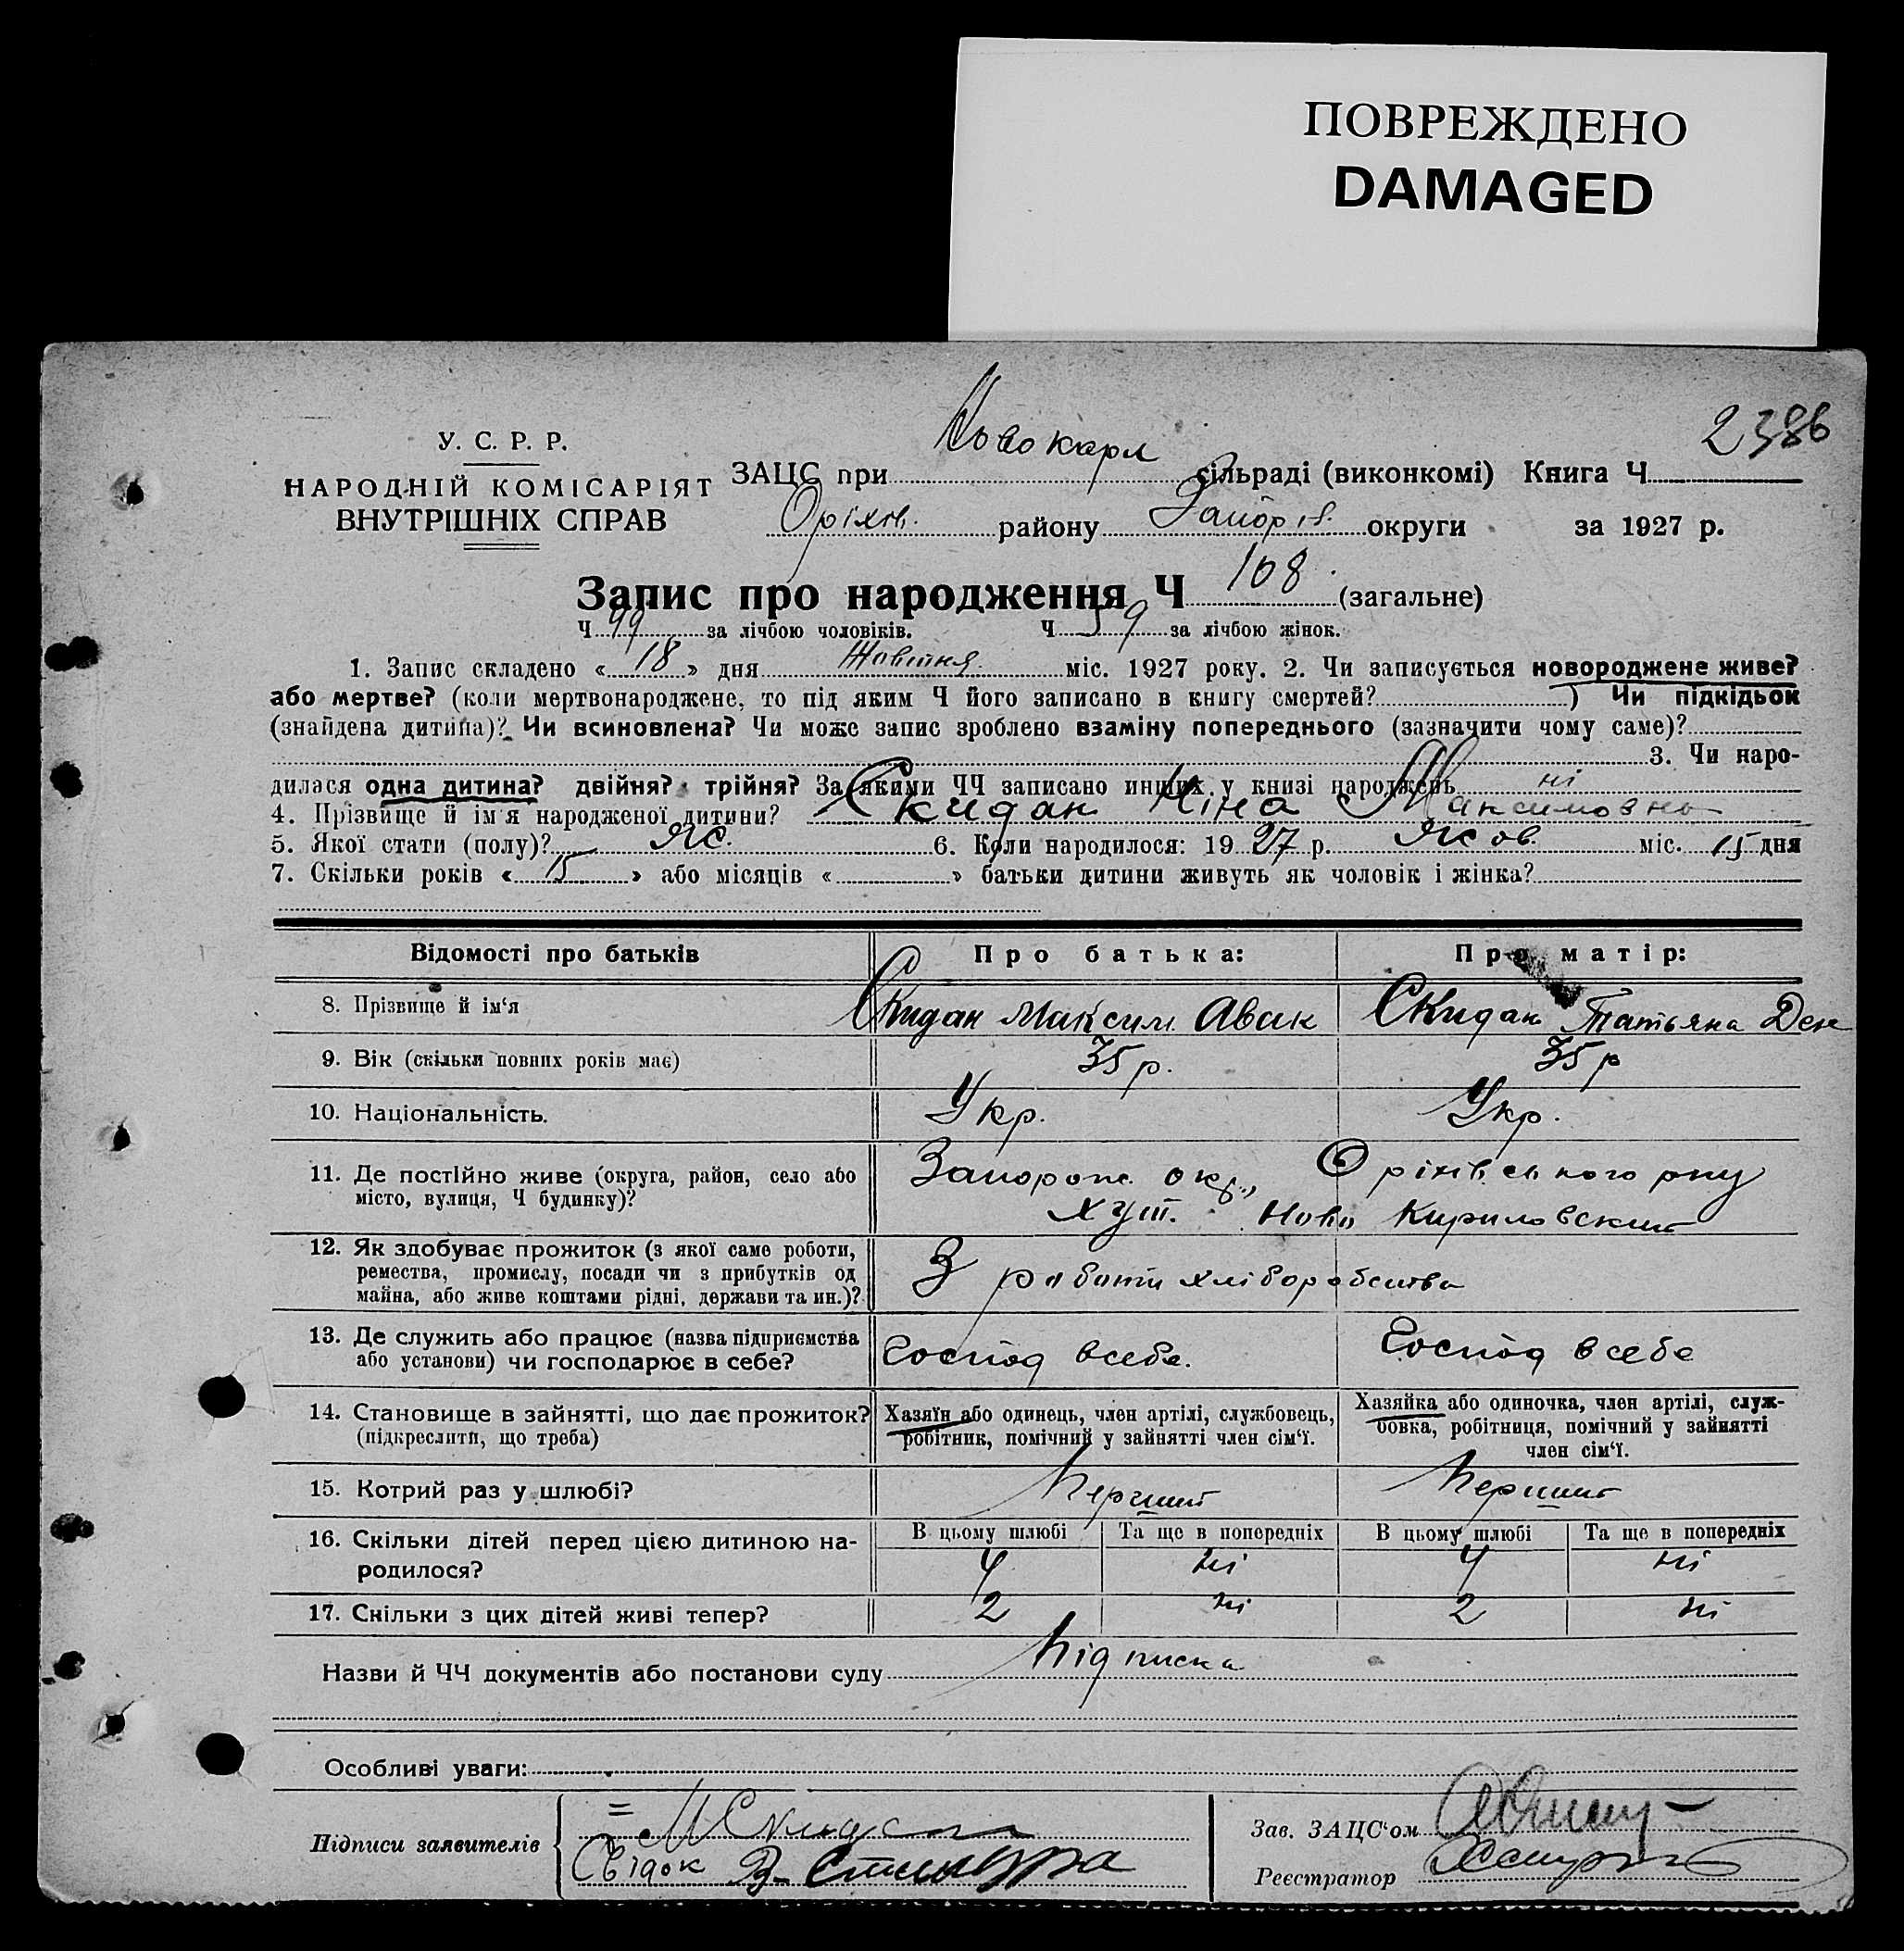 ПОВРЕЖДЕНО
DAMAGED
2386
У. С. Р. Р.
НАРОДНІЙ КОМІСАРІЯТ
ВНУТРІШНІХ СПРАВ
ЗАЦС при Новокарл сільраді (виконкомі) Книга Ч
Оріхів. району Запоріз. округи за 1927 р.
Запис про народження Ч 108 (загальне)
Ч 99 за лічбою чоловіків. Ч 59 за лічбою жінок.
1. Запис складено « 18 » дня Жовтня міс. 1927 року. 2. Чи записується новороджене живе?
або мертве? (коли мертвонароджене, то під яким Ч його записано в книгу смертей? ) Чи підкідьок
(знайдена дитина)? Чи всиновлена? Чи може запис зроблено взаміну попереднього (зазначити чому саме)?
3. Чи наро-
дилася одна дитина? двійня? трійня? За якими ЧЧ записано инших у книзі народжень ні
4. Прізвище й ім'я народженої дитини? Скидан Ніна Максимовна
5. Якої стати (полу)? Жс. 6. Коли народилося: 1927 р. Жов. міс. 15 дня
7. Скільки років « 15 » або місяців « » батьки дитини живуть як чоловік і жінка?
Відомості про батьків Про батька: Про матір:
8. Прізвище й ім'я Скидан Максим Авак Скидан Татьяна Дем
9. Вік (скільки повних років має) 35 р. 35 р
10. Національність. Укр. Укр.
11. Де постійно живе (округа, район, село або Запорож. окр., Оріхівського рну
місто, вулиця, Ч будинку)? хут. Ново Кириловский
12. Як здобуває прожиток (з якої саме роботи, З роботи хліборобства
ремества, промислу, посади чи з прибутків од
майна, або живе коштами рідні, держави та ин.)?
13. Де служить або працює (назва підприємства Господ всебе. Господ в себе
або установи) чи господарює в себе?
14. Становище в зайнятті, що дає прожиток? Хазяїн або одинець, член артілі, службовець, Хазяйка або одиночка, член артілі, служ-
(підкреслити, що треба) робітник, помічний у зайнятті член сім'ї. бовка, робітниця, помічний у зайнятті
член сім'ї.
15. Котрий раз у шлюбі? Перший Перший
16. Скільки дітей перед цією дитиною на- В цьому шлюбі Та ще в попередніх В цьому шлюбі Та ще в попередніх
родилося? 4 ні 4 ні
17. Скільки з цих дітей живі тепер? 2 ні 2 ні
Назви й ЧЧ документів або постанови суду Підписка
Особливі уваги:
Підписи заявителів М Скидан Зав. ЗАЦС'ом
Свідок В. Реєстратор